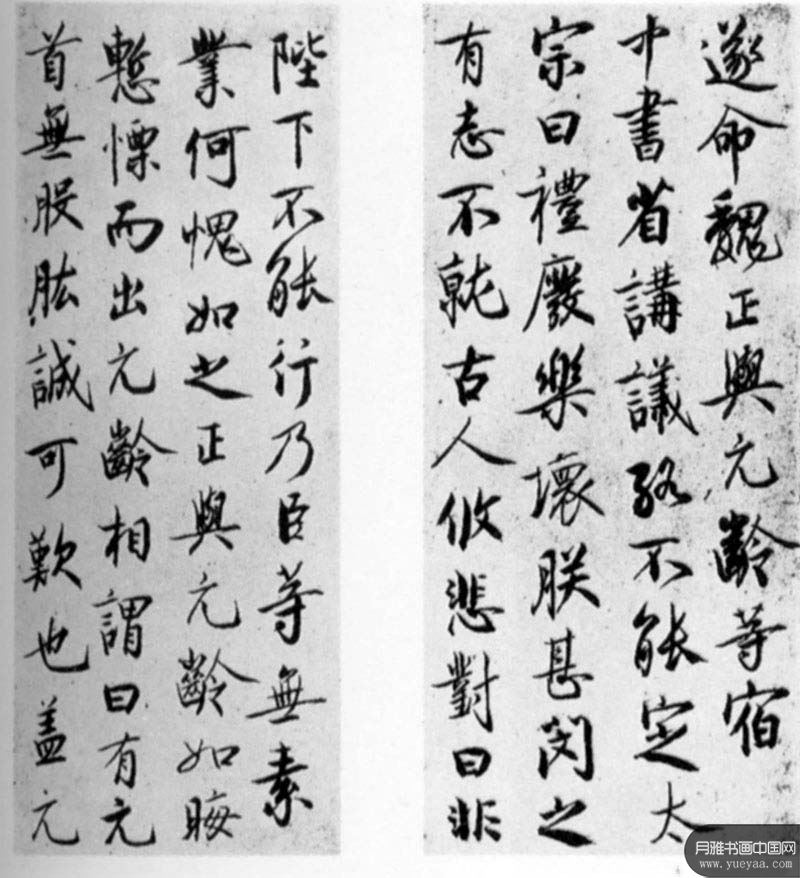 遂命魏正與元齡等宿
中書省講議終不能定太
宗曰禮廢樂壞朕甚閔之
有志不就古人攸悲對曰非
陛下不能行乃臣等無素
業何愧如之正與元齡如晦
慙慄而出元齡相謂曰有元
首無股肱誠可歎也盖元
月雅书画中国网
www.yueyaa.com